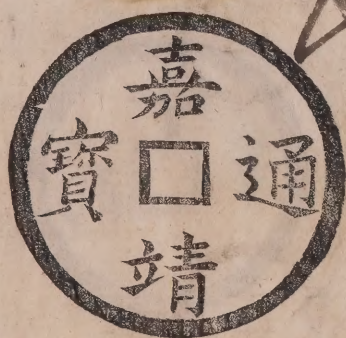 嘉靖
通寶